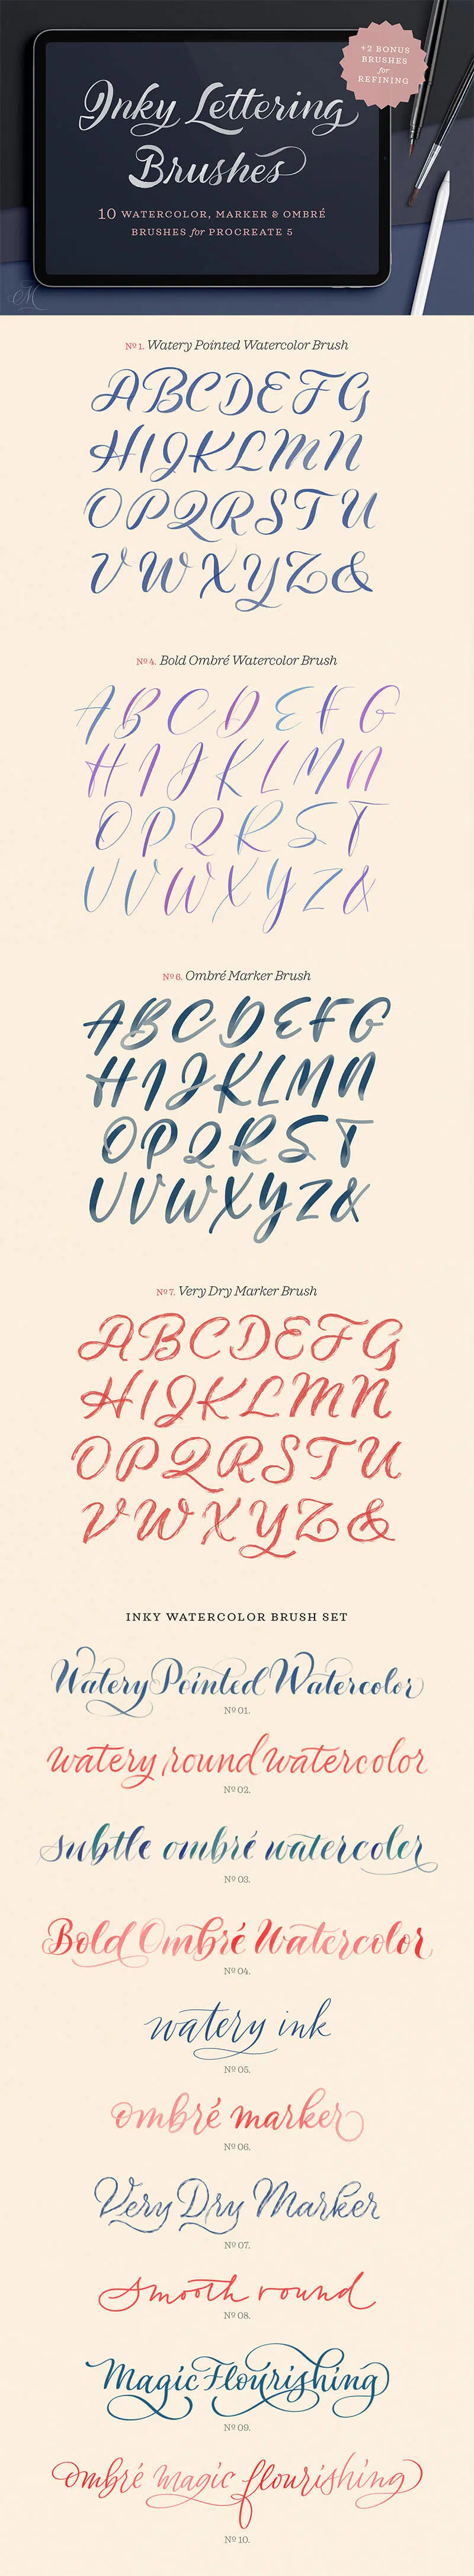 +2 BONUS
BRUSHES
for
REFINING
Inky Lettering
Brushes
10 WATERCOLOR, MARKER & OMBRÉ
BRUSHES for PROCREATE 5
M
Nº 1. Watery Pointed Watercolor Brush
A B C D E F G
H I J K L M N
O P Q R S T U
V W X Y Z &
Nº 4. Bold Ombré Watercolor Brush
A B C D E F G
H I J K L M N
O P Q R S T
U V W X Y Z &
Nº 6. Ombré Marker Brush
A B C D E F G
H I J K L M N
O P Q R S T
U V W X Y Z &
Nº 7. Very Dry Marker Brush
A B C D E F G
H I J K L M N
O P Q R S T U
V W X Y Z &
INKY WATERCOLOR BRUSH SET
Watery Pointed Watercolor
Nº 01.
watery round watercolor
Nº 02.
subtle ombré watercolor
Nº 03.
Bold Ombré Watercolor
Nº 04.
watery ink
Nº 05.
ombré marker
Nº 06.
Very Dry Marker
Nº 07.
Smooth round
Nº 08.
Magic Flourishing
Nº 09.
ombré magic flourishing
Nº 10.